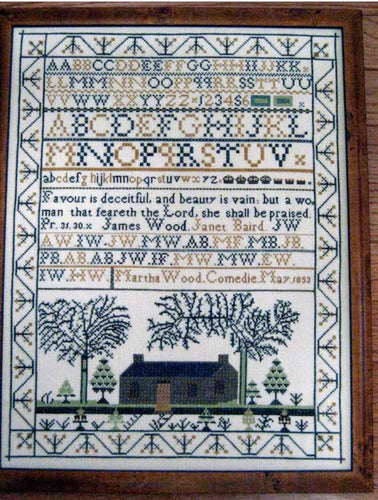 AABBCCDDEEFFGGHHIIJJKK
LLMMNNOOPPQQRRSSTTUU
VVWWXXYYZZ 123456 x
ABCDEFGHIJKL
MNOPQRSTUVx
abcdefghijklmnopqrstuvwxyz
Favour is deceitful, and beauty is vain: but a wo
man that feareth the Lord, she shall be praised.
Pr. 31.30.x James Wood. Janet Baird. JW
AW. IW. JW. MW. AB. MF. MB. JB.
PB. AB. AB. JW. JF. MW. MW. EW
IW. HW Martha Wood. Comedie. May. 1853